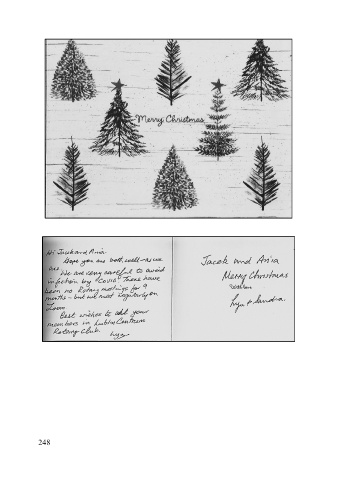 Merry Christmas
Hi Jacek and Ania.
Hope you are both well - as we
are. We are very careful to avoid
infection by "Covid" There have
been no Rotary meetings for 9
months - but we meet regularly on
Zoom
Best wishes to all your
members in Lublin Centrum
Rotary Club.
Jacek and Ania
Merry Christmas
& Sandra.
248